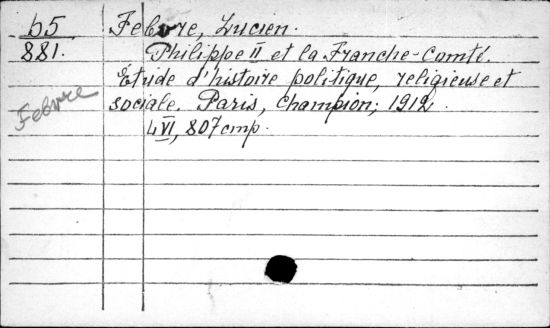 b5 Febvre, Lucien.
881. Philippe II et la Franche-Comté.
Étude d'histoire politique, religieuse et
Febvre
sociale. Paris, Champion, 1912.
LVI, 807 cmp.